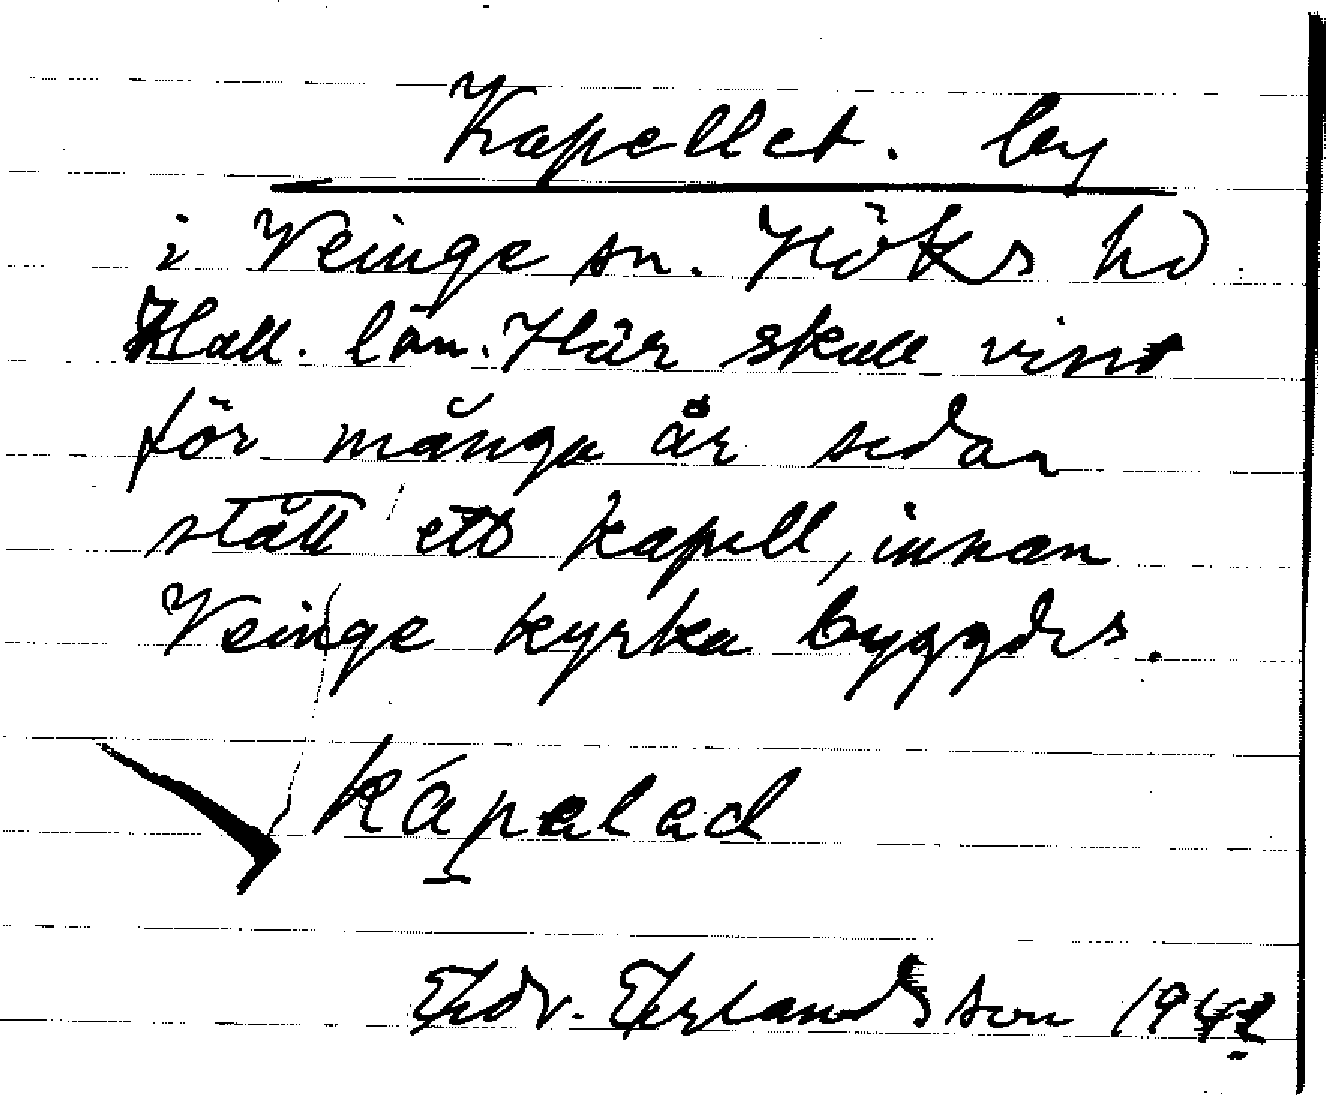 Kapellet. by
i Veinge sn. Höks hd.
Hall. län. Här skall visst
för många år sedan
stått ett kapell, innan
Veinge kyrka byggdes.
kápelad
Edv. Erlandsson